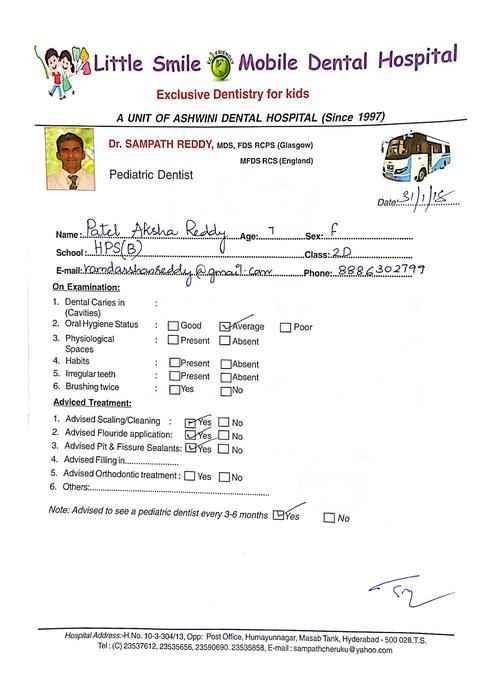 Little Smile ECO FRIENDLY Mobile Dental Hospital
Exclusive Dentistry for kids
A UNIT OF ASHWINI DENTAL HOSPITAL (Since 1997)
Dr. SAMPATH REDDY, MDS, FDS RCPS (Glasgow)
MFDS RCS (England)
Pediatric Dentist
Date: 31/1/18
Name: Patel Aksha Reddy Age: 7 Sex: F
School: HPS(B) Class: 2D
E-mail: ramdarshanreddy@gmail.com Phone: 8886302799
On Examination:
1. Dental Caries in :
(Cavities)
2. Oral Hygiene Status : Good Average Poor
3. Physiological : Present Absent
Spaces
4. Habits : Present Absent
5. Irregular teeth : Present Absent
6. Brushing twice : Yes No
Adviced Treatment:
1. Advised Scaling/Cleaning : Yes No
2. Advised Flouride application: Yes No
3. Advised Pit & Fissure Sealants: Yes No
4. Advised Filling in
5. Advised Orthodontic treatment : Yes No
6. Others:
Note: Advised to see a pediatric dentist every 3-6 months Yes No
Hospital Address:-H.No. 10-3-304/13, Opp: Post Office, Humayunnagar, Masab Tank, Hyderabad - 500 028.T.S.
Tel : (C) 23537612, 23535656, 23590690. 23535858, E-mail : sampathcheruku@yahoo.com